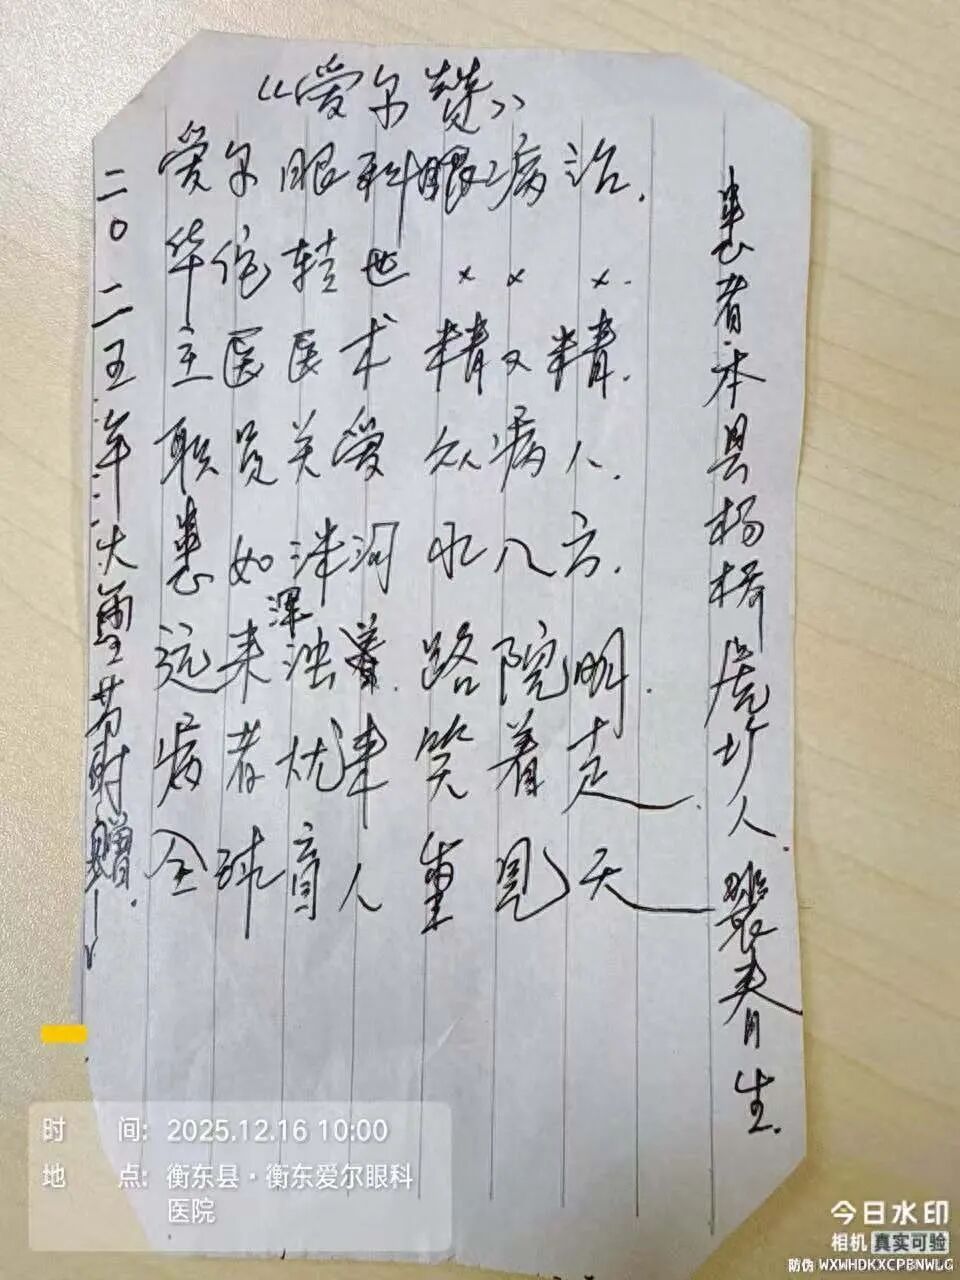 《爱尔赞》
爱尔眼科眼病治.
华佗转世 × × ×.
主医医术精又精.
职员关爱众病人.
患如洣河水八方.
远来浑浊着.路院明.
病者忧来笑着走.
全球盲人重见天
患者:本县杨桥虎圹人.
春生.
二〇二五年大雪节时赠.
时 间: 2025.12.16 10:00
地 点: 衡东县·衡东爱尔眼科
医院
今日水印
相机 真实可验
防伪 WXWHDKXCPBNWLG